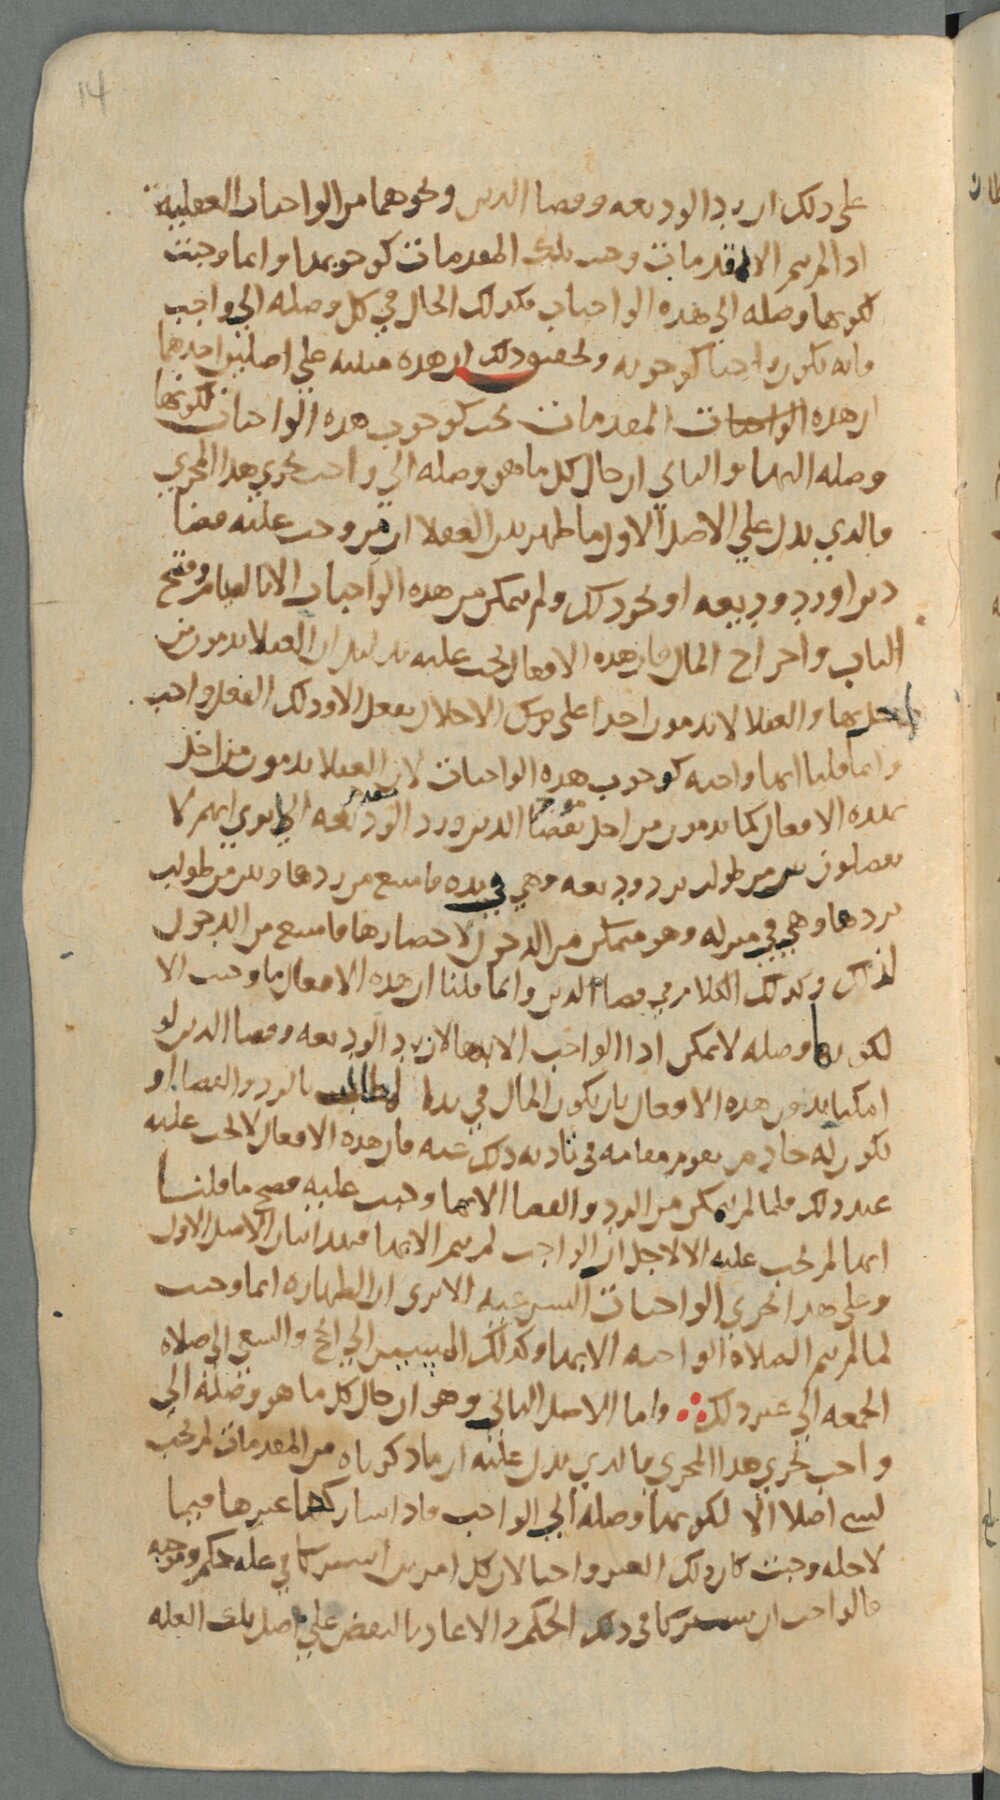 14
على ذلك ان رد الوديعه وقضا الدين ونحوهما من الواجبات العقليه
اذا لم يتم الا بمقدمات وجبت تلك المقدمات كوجوبها وانما وجبت
لكونها وصله الى هذه الواجبات فكذلك الحال في كل وصله الى واجب
فانه يكون واجبا كوجوبه وتحقيق ذلك ان هذه مبنيه على اصلين احدهما
ان هذه الواجبات المقدمات تجب كوجوب هذه الواجبات لكونها
وصله اليها والثاني ان حال كل ما هو وصله الى واجب يجري هذا المجرى
فالذي يدل على الاصل الاول ما ظهر بين العقلا ان من وجب عليه قضا
دين او رد وديعه او نحو ذلك ولم يتمكن من هذه الواجبات الا بالقيام وفتح
الباب واخراج المال فان هذه الافعال تجب عليه بدليل ان العقلا يذمون من
اخل بها والعقلا لا يذمون احدا على ترك الاخلال بفعل الا وذلك الفعل واجب
وانما قلنا انها واجبه كوجوب هذه الواجبات لان العقلا يذمون من اخل
بهذه الافعال كما يذمون من اخل بقضا الدين ورد الوديعه الا ترى انهم لا
يفصلون بين من طولب برد وديعه وهي في يده فامتنع من ردها وبين من طولب
بردها وهي في منزله وهو متمكن من الدخول لاحضارها فامتنع من الدخول
لذلك وكذلك الكلام في قضا الدين وانما قلنا ان هذه الافعال ما وجبت الا
لكونها وصله لا يمكن ادا الواجب الا بها لان رد الوديعه وقضا الدين لو
امكنا بدون هذه الافعال بان يكون المال في يد المطالب بالرد والقضا او
يكون له خادم يقوم مقامه في تاديه ذلك عنه فان هذه الافعال لا تجب عليه
عند ذلك فلما لم يتمكن من الرد والقضا الا بها وجبت عليه فصح ما قلنا
انها لم تجب عليه الا لاجل ان الواجب لم يتم الا بها فهذا بيان الاصل الاول
وعلى هذا تجري الواجبات الشرعيه الا ترى ان الطهاره انما وجبت
لما لم يتم الصلاه الواجبه الا بها وكذلك المسير الى الحج والسعي الى صلاه
الجمعه الى غير ذلك واما الاصل الثاني وهو ان حال كل ما هو وصله الى
واجب يجري هذا المجرى فالذي يدل عليه ان ما ذكرناه من المقدمات لم تجب
لشي اصلا الا لكونها وصله الى الواجب فاذا شاركها غيرها فيما
لاجله وجبت كان ذلك الغير واجبا لان كل امرين اشتركا في عله حكم وموجبه
فالواجب ان يشتركا في ذلك الحكم والا عاد بالنقض على اصل تلك العله